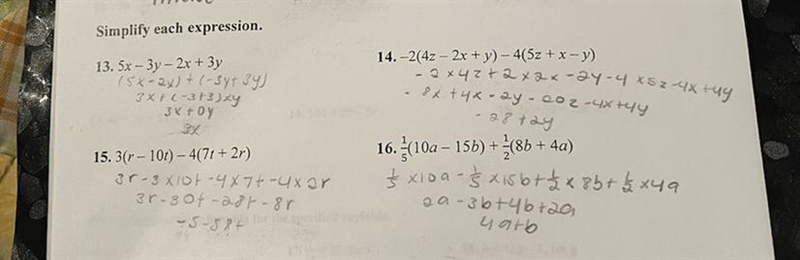 Simplify each expression.
13. 5x – 3y – 2x + 3y
(5x-2x)+(-3y+3y)
3x+(-3+3)xy
3x+0y
3x
14. –2(4z – 2x + y) – 4(5z + x – y)
-2x4z+2x2x-2y-4x5z-4x+4y
-8x+4x-2y-20z-4x+4y
-28+2y
15. 3(r – 10t) – 4(7t + 2r)
3r-3x10t-4x7t-4x2r
3r-30t-28t-8r
-5-58t
16. 1/5(10a – 15b) + 1/2(8b + 4a)
1/5x10a-1/5x15b+1/2x8b+1/2x4a
2a-3b+4b+2a
4a+b